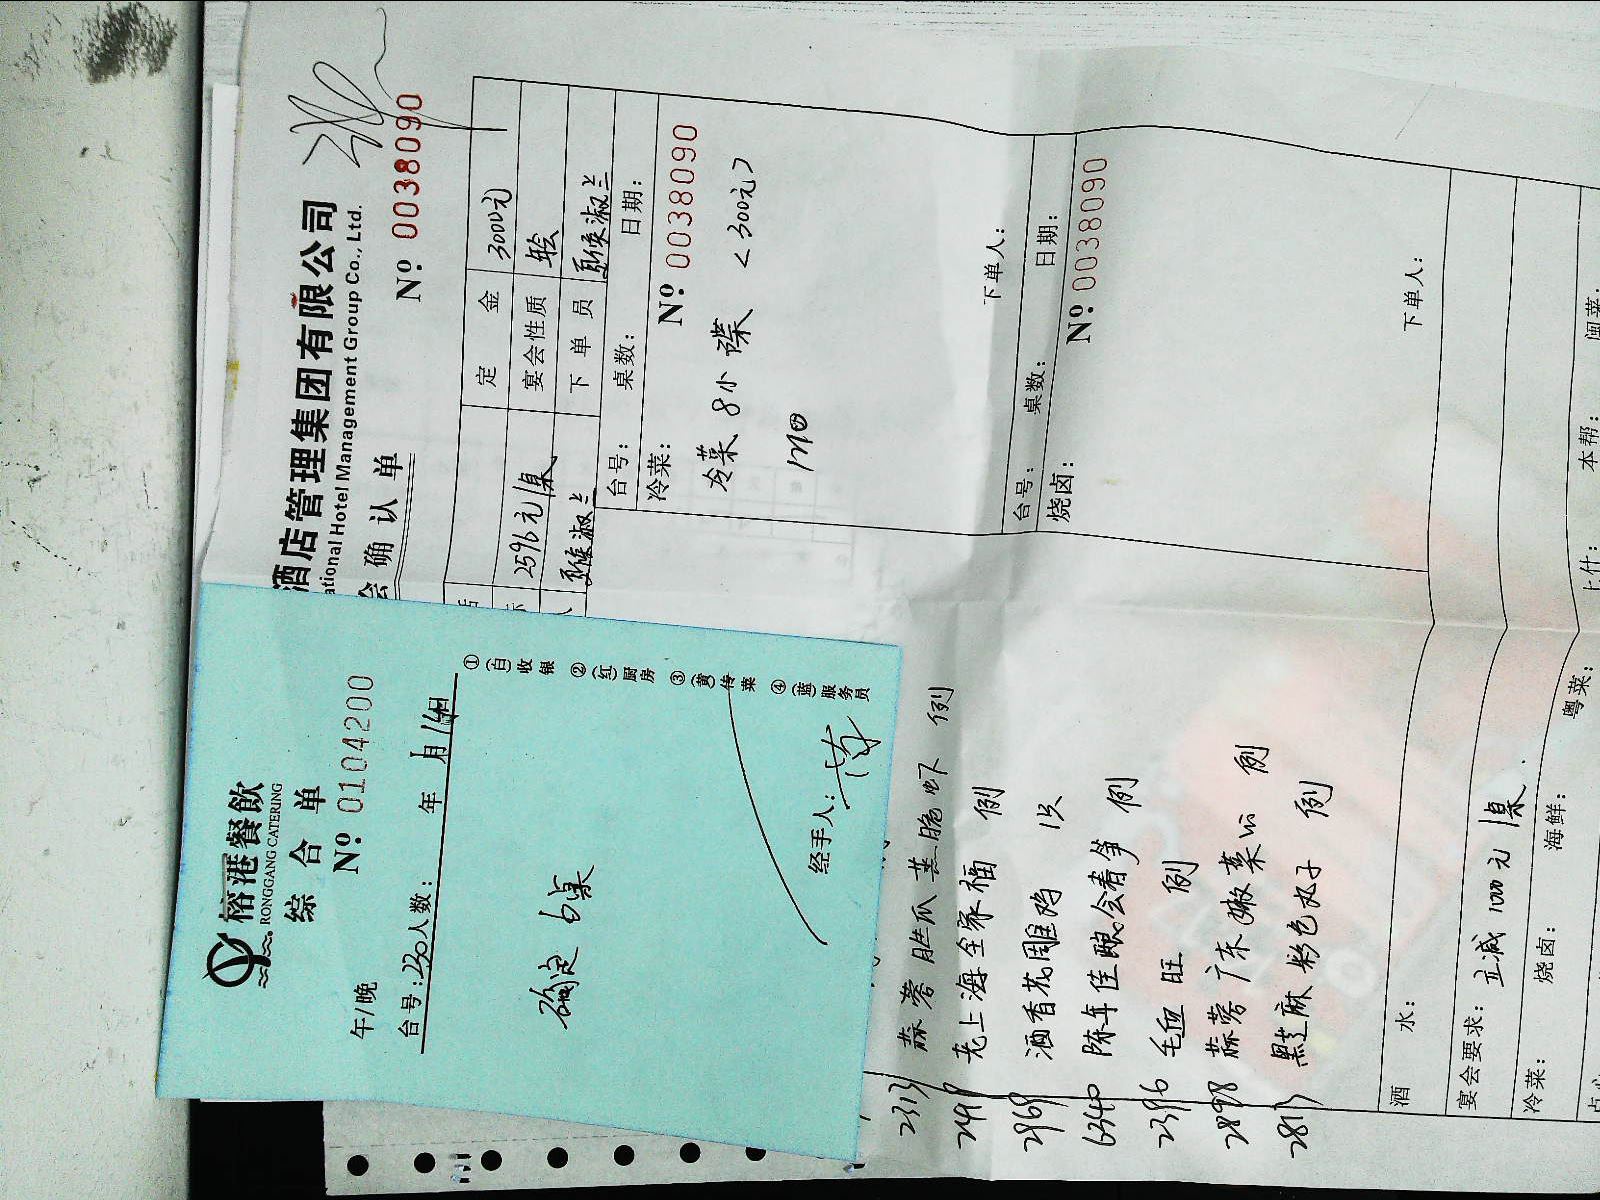 酒店管理集团有限公司
ational Hotel Management Group Co., Ltd.
会确认单
Nº 0038090
定金 3000元
2596元/桌 宴会性质
夏侯淑兰 下单员 夏侯淑兰
台号： 桌数： 日期：
冷菜： Nº 0038090
冷菜 8小碟 <300元>
下单人：
台号： 桌数： 日期：
烧卤： Nº 0038090
下单人：
榕港餐飲
RONGGANG CATERING
综合单
午/晚 Nº 0104200
台号：230 人数： 年 月14日
确定 6桌
经手人：
①(白)收银
②(红)厨房
③(黄)传菜
④(蓝)服务员
2313 蒜蓉胜瓜蒸脆虾 例
2498 老上海全家福 例
2969 酒香花雕鸡 1只
6340 陈年佳酿会春笋 例
2396 毛血旺 例
2898 蒜蓉广东嫩菜心 例
2813 黑芝麻彩色丸子 例
酒水：
宴会要求：立减100元/桌
冷菜： 烧卤： 海鲜：
粤菜： 上什： 本帮： 闽菜：